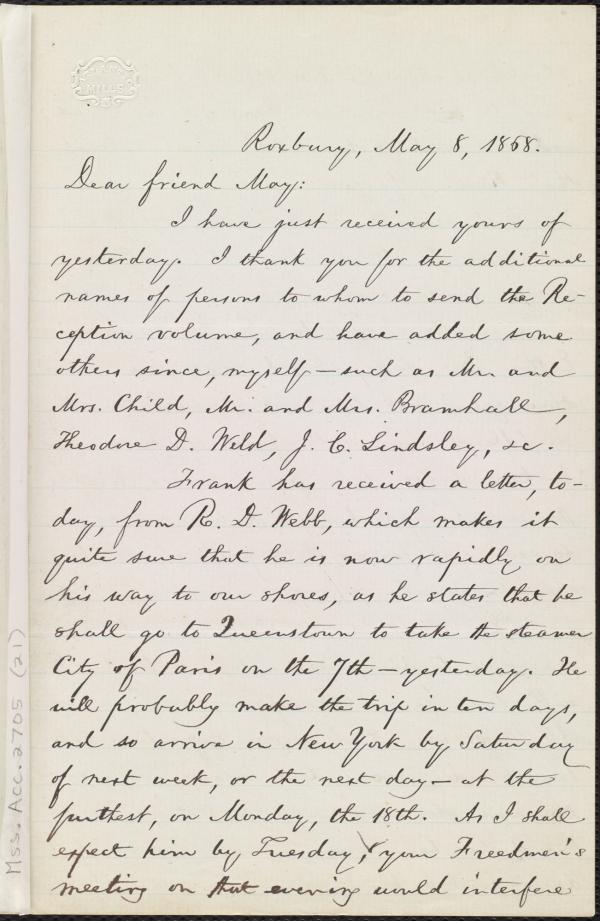 MILLS
Roxbury, May 8, 1868.
Dear friend May:
I have just received yours of
yesterday. I thank you for the additional
names of persons to whom to send the Re-
ception volume, and have added some
others since, myself — such as Mr. and
Mrs. Child, Mr. and Mrs. Bramhall,
Theodore D. Weld, J. C. Lindsley, &c.
Frank has received a letter, to-
day, from R. D. Webb, which makes it
quite sure that he is now rapidly on
his way to our shores, as he states that he
shall go to Queenstown to take the steamer
City of Paris on the 7th — yesterday. He
will probably make the trip in ten days,
and so arrive in New York by Saturday
of next week, or the next day — at the
furthest, on Monday, the 18th. As I shall
expect him by Tuesday, your Freedmen's
meeting on that evening would interfere
Mss. Acc. 2705 (21)